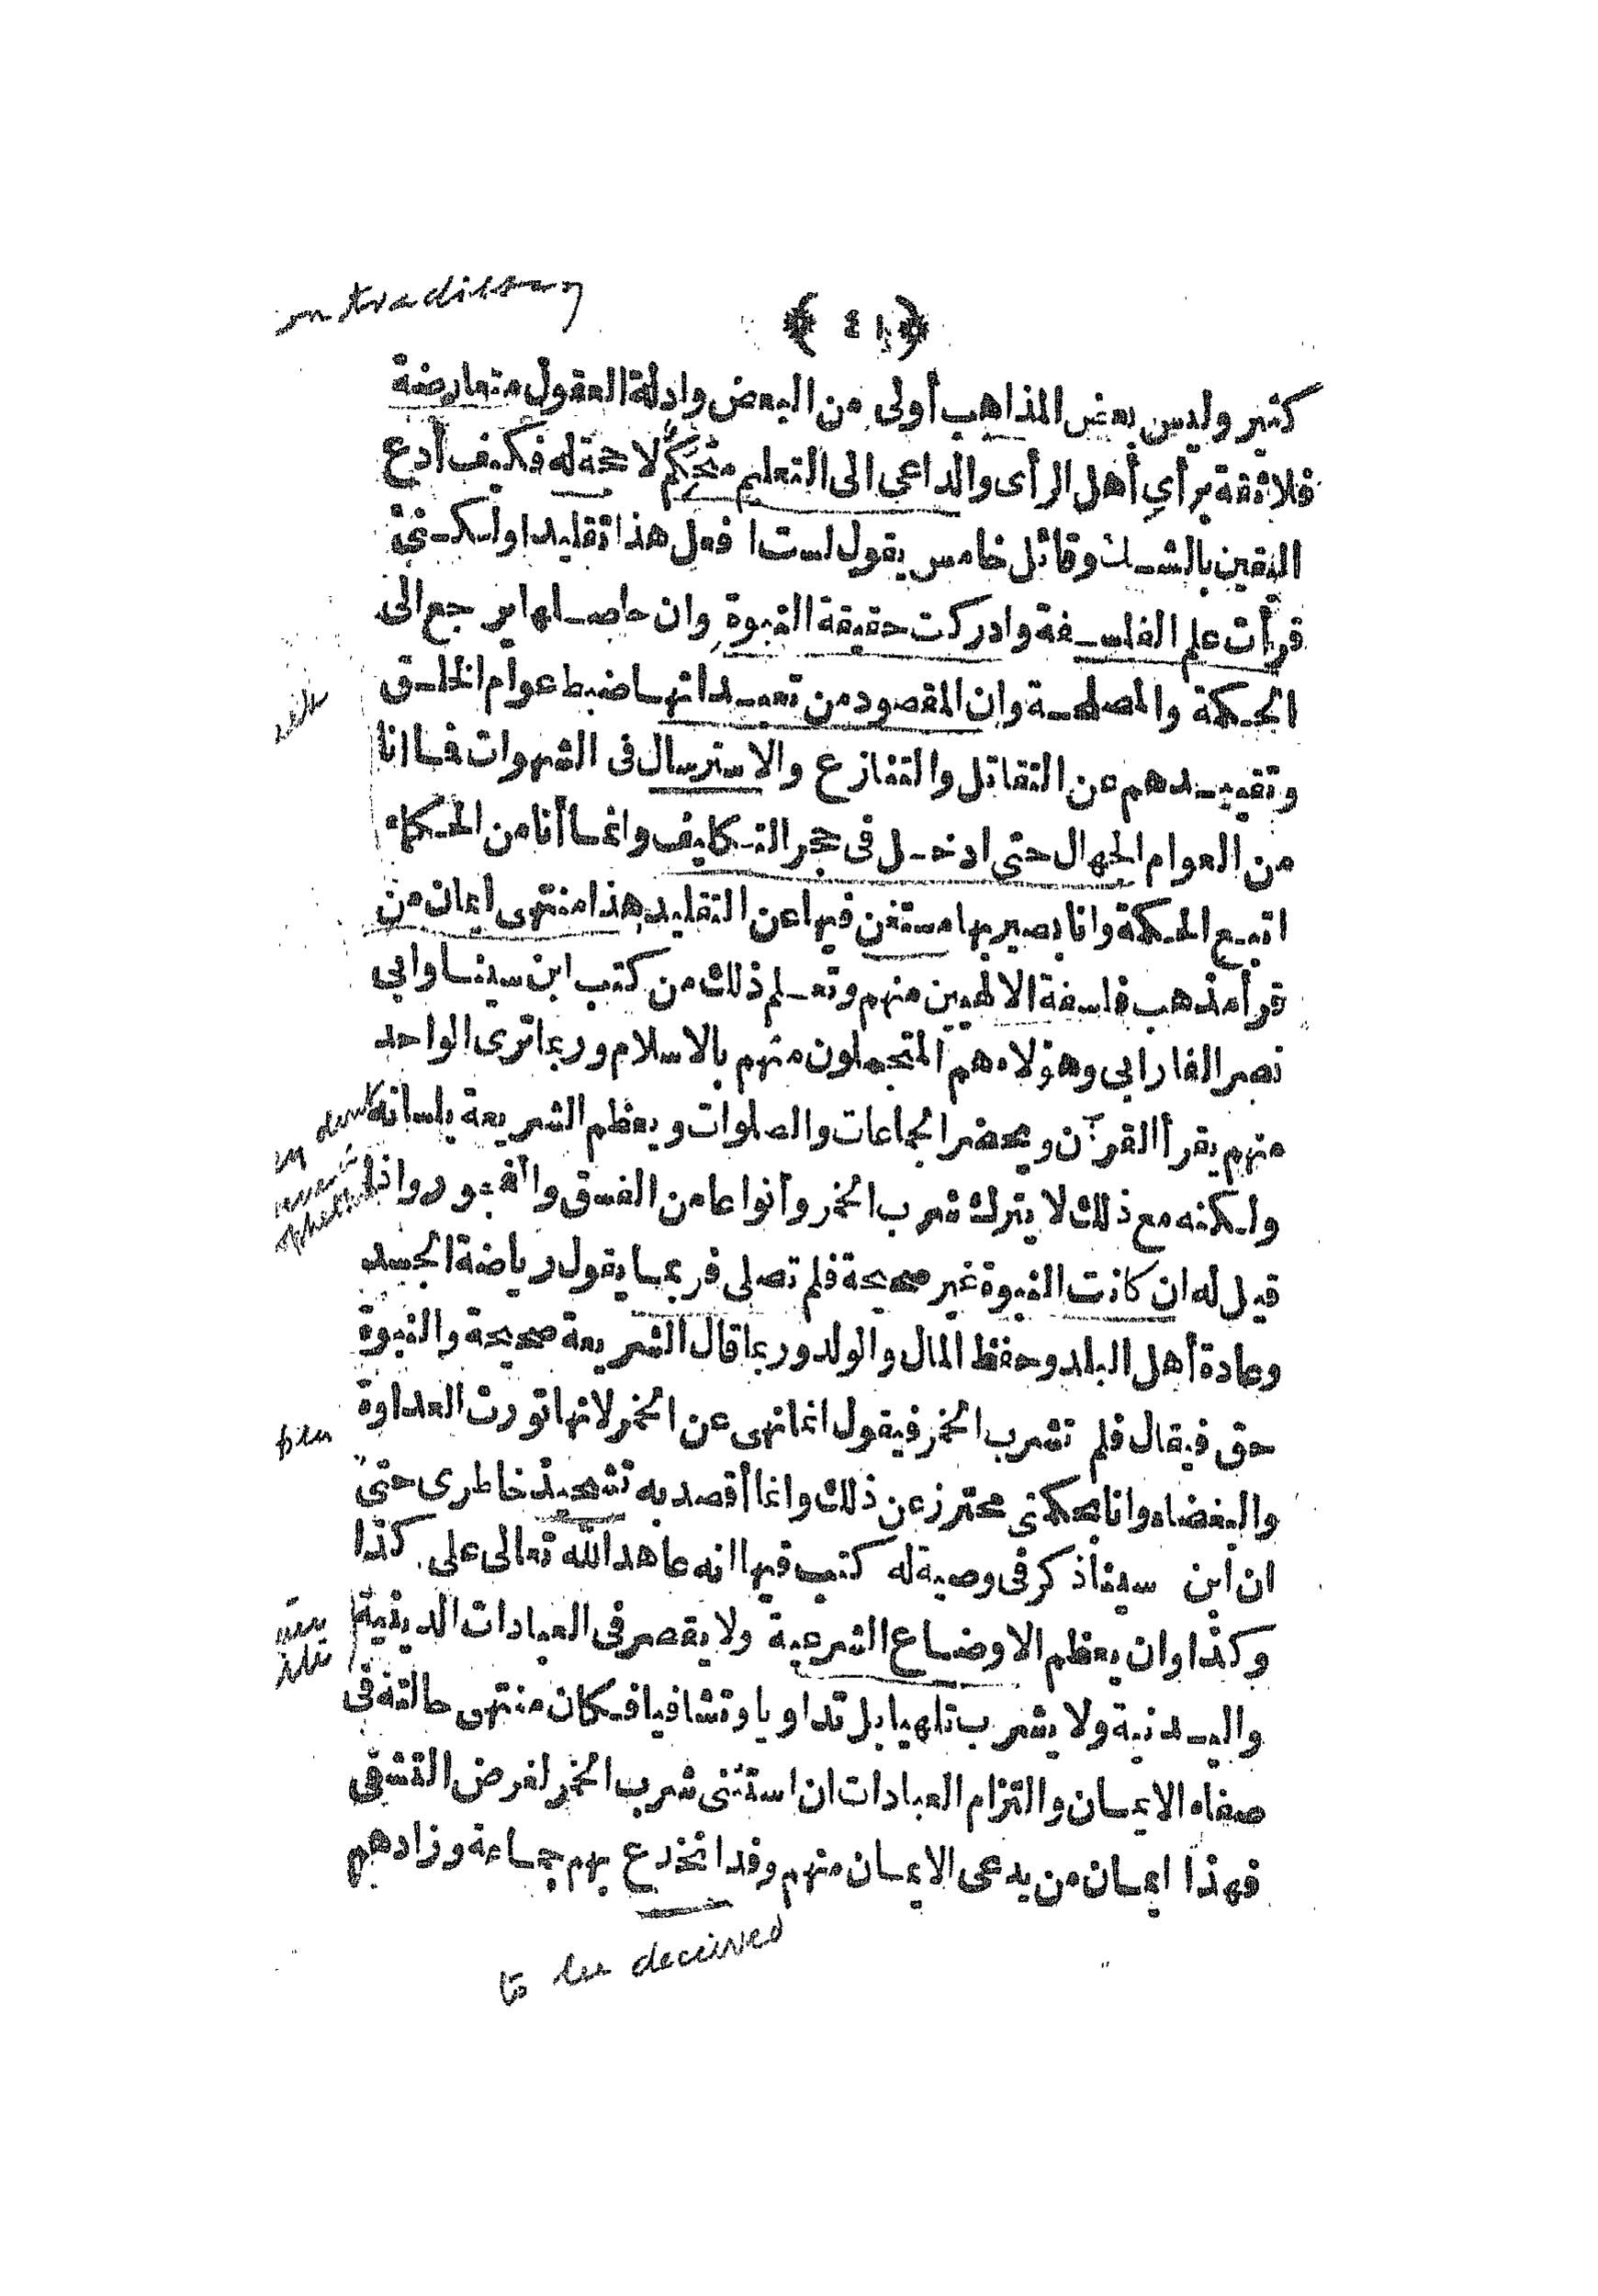 ﴿ ٤١ ﴾
كثير وليس بعض المذاهب أولى من البعض وادلة العقول متعارضة
فلا ثقة برأي أهل الرأى والداعى الى التعليم متحكم لا حجة له فكيف أدع
اليقين بالشك وقائل خامس يقول لست افعل هذا تقليدا ولكنى
قرأت علم الفلسفة وادركت حقيقة النبوة وان حاصلها يرجع الى
الحكمة والمصلحة وان المقصود من تعبداتها ضبط عوام الخلق
وتقييدهم عن التقاتل والتنازع والاسترسال فى الشهوات فما انا
من العوام الجهال حتى ادخل فى حجر التكليف وانما أنا من الحكماء
اتبع الحكمة وانا بصير بها مستغن فيها عن التقليد هذا منتهى ايمان من
قرأ مذهب فلسفة الالهيين منهم وتعلم ذلك من كتب ابن سينا وابي
نصر الفارابي وهؤلاء هم المتجملون منهم بالاسلام وربما ترى الواحد
منهم يقرأ القرآن ويحضر الجماعات والصلوات ويعظم الشريعة بلسانه
ولكنه مع ذلك لا يترك شرب الخمر وأنواعا من الفسق والفجور واذا
قيل له ان كانت النبوة غير صحيحة فلم تصلى فربما يقول رياضة الجسد
وعادة أهل البلد وحفظ المال والولد وربما قال الشريعة صحيحة والنبوة
حق فيقال فلم تشرب الخمر فيقول انما نهى عن الخمر لانها تورث العداوة
والبغضاء وانا بحكمتى محترز عن ذلك وانما أقصد به تشحيذ خاطرى حتى
ان ابن سينا ذكر فى وصية له كتب فيها انه عاهد الله تعالى على كذا
وكذا وان يعظم الاوضاع الشرعية ولا يقصر فى العبادات الدينية
والبدنية ولا يشرب تلهيا بل تداويا وتشافيا فكان منتهى حالته فى
صفاء الايمان والتزام العبادات ان استثنى شرب الخمر لغرض التشفى
فهذا ايمان من يدعى الايمان منهم وقد انخدع بهم جماعة وزادهم
to be deceived